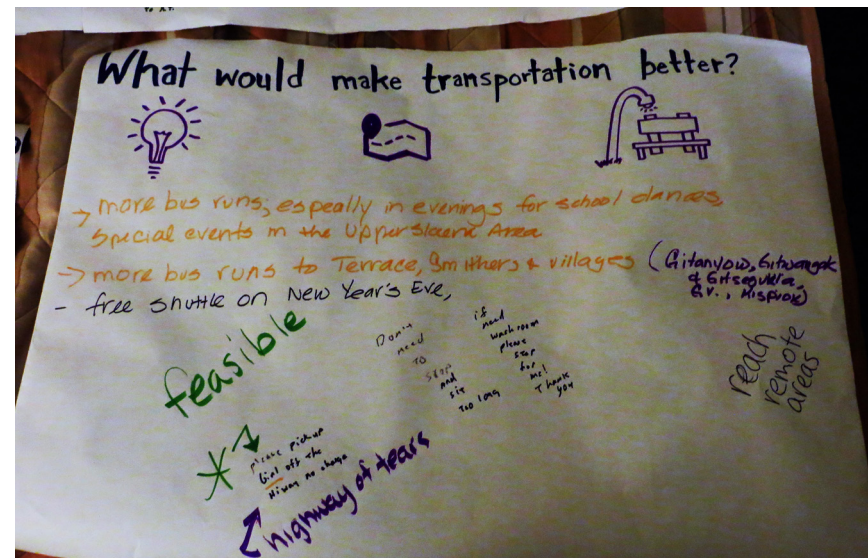 What would make transportation better?
→ more bus runs, espeally in evenings for school dances,
special events in the Upper Skeena Area
→ more bus runs to Terrace, Smithers & villages (Gitanyow, Gitwangak
& Gitsegukla,
G.V., Kispiox)
- free shuttle on New Year's Eve,
feasible
Don't
need
TO
stop
and
sit
too long
if
need
washroom
please
stop
for
me!
Thank
you
reach
remote
areas
please pickup
Girl off the
Hiway no charge
highway of tears